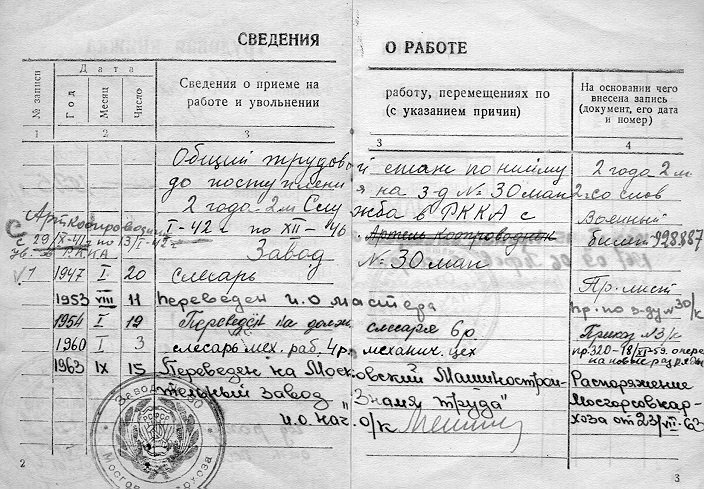 СВЕДЕНИЯ О РАБОТЕ
№ записи
Дата
Год
Месяц
Число
Сведения о приеме на работу, перемещениях по
работе и увольнении (с указанием причин)
На основании чего
внесена запись
(документ, его дата
и номер)
1 2 3 3 4
Общий трудовой стаж по найму 2 года 2 м
до поступления на з-д № 30 МАП со слов
2 года 2 м Служба в РККА с Военный
I-42 г по XII-46 Артель Коопроводник билет 928887
С Арт Коопроводник
с 29/X-41 г по 13/I-42 г
ув. в РККА
Завод № 30 МАП
1 1947 I 20 слесарь Пр. лист
1953 VIII 11 переведен и.о мастера пр. по з-ду № 30/к
1954 I 19 Переведен на должн слесаря 6р Приказ № 3/к
1960 I 3 слесарь мех. раб. 4р. механич. цех пр. 320-18/XII-59.
на новые разряды
1963 IX 15 Переведен на Московский Машинострои- Распоряжение
тельный завод "Знамя труда" Мосгорсовнар-
и.о нач. о/к хоза от 23/VII-63
Завод
РСФСР
2
3